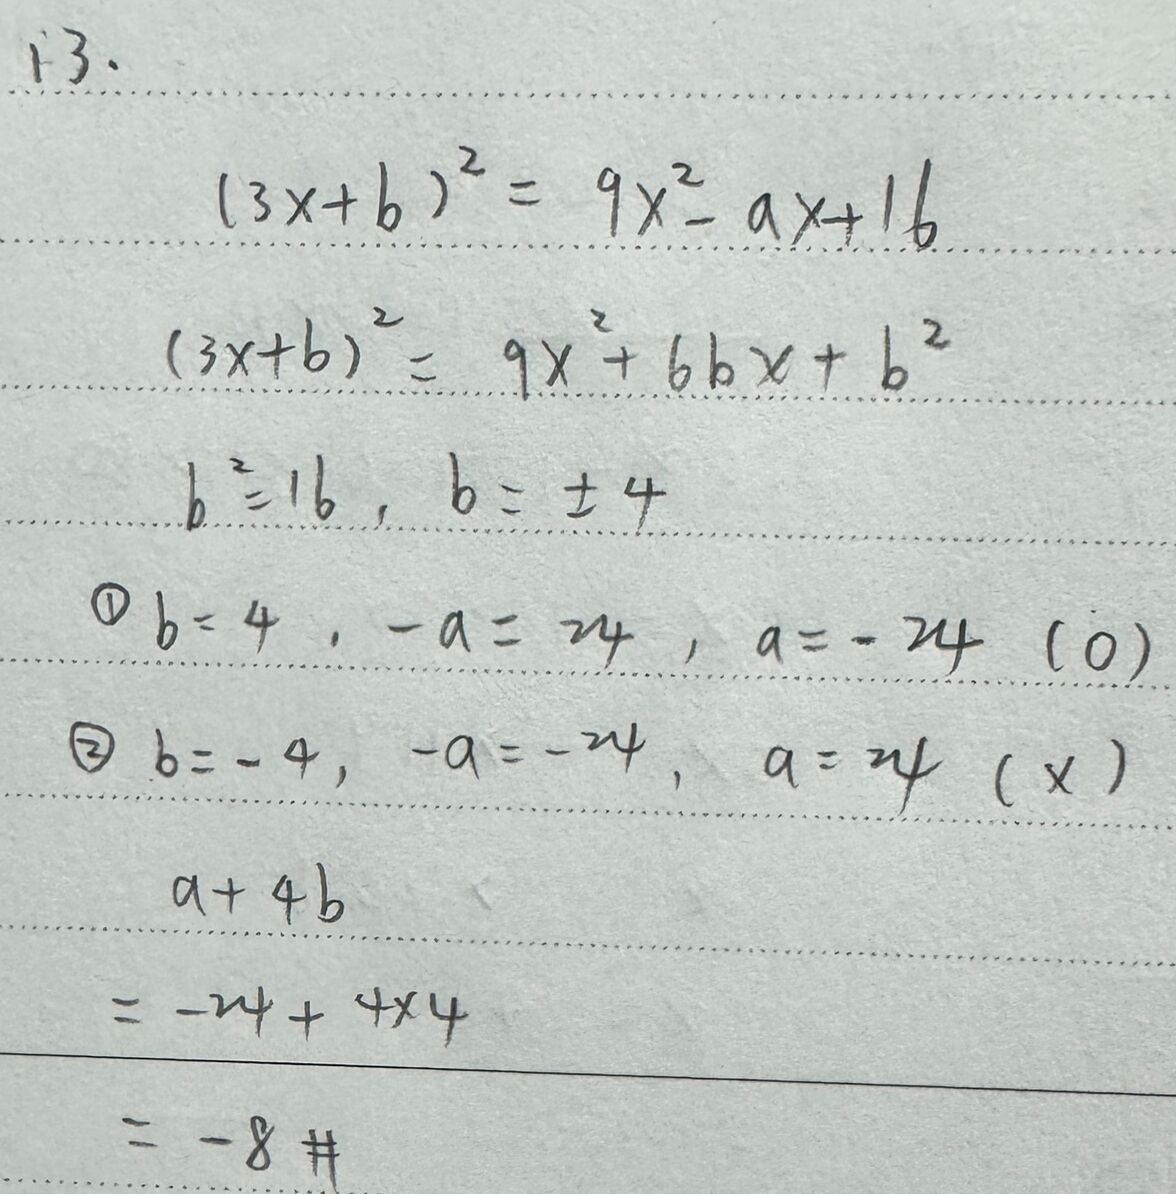 13.
(3x+b)² = 9x²-ax+16
(3x+b)² = 9x²+6bx+b²
b²=16, b=±4
① b=4, -a=24, a=-24 (O)
② b=-4, -a=-24, a=24 (x)
a+4b
= -24+4×4
= -8 #